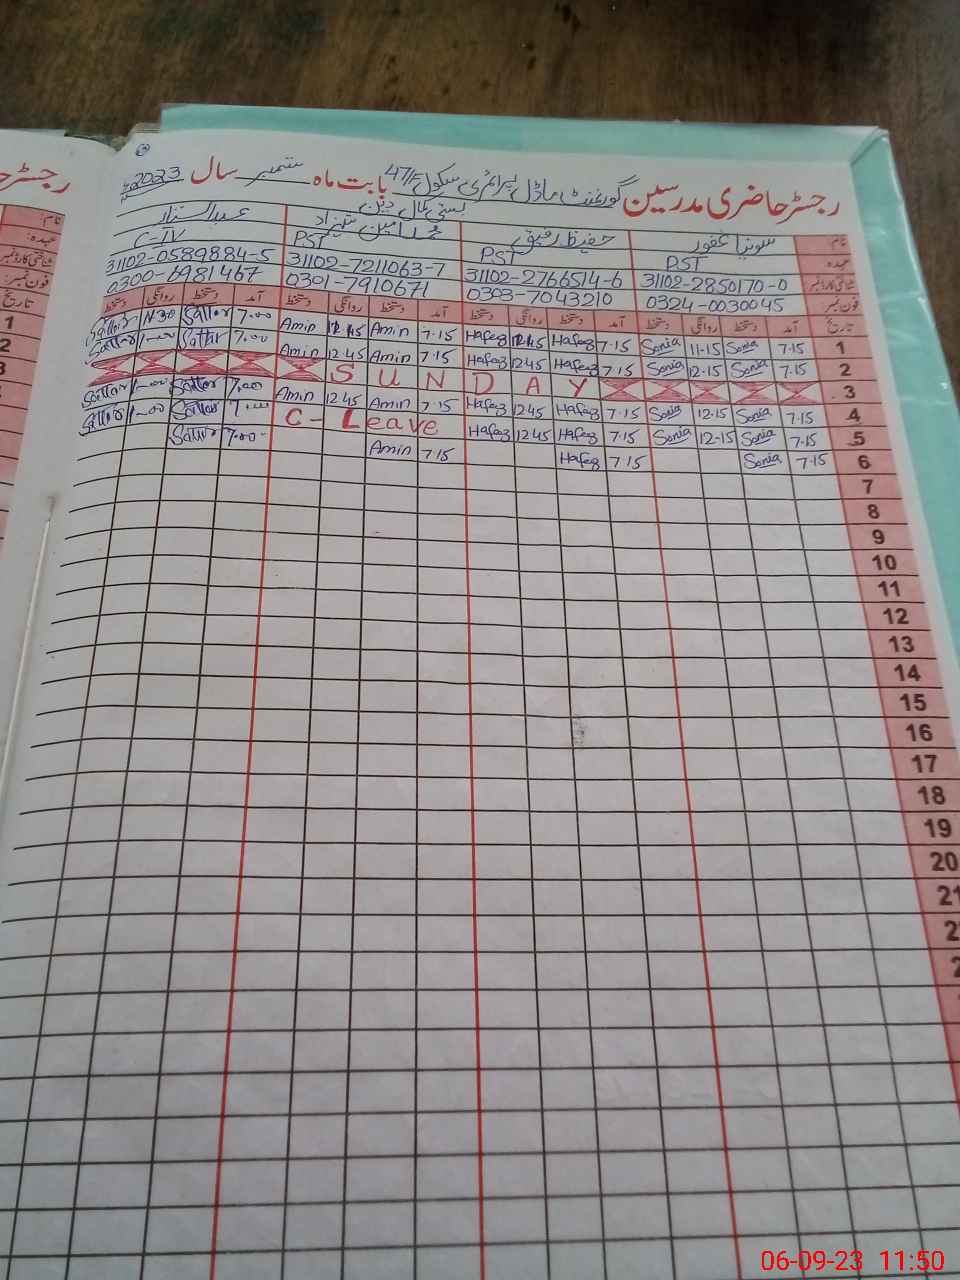 رجسٹر حاضری مدرسین گورنمنٹ ماڈل پرائمری سکول 47/F بابت ماہ ستمبر سال 2023
بستی کمال دین
نام: سونیا غفور حفیظ رفیق محمد امین شہزاد عبدالستار
عہدہ: PST PST PST C-IV
شناختی کارڈ نمبر 31102-2850170-0 31102-2766514-6 31102-7211063-7 31102-0589884-5
فون نمبر: 0324-0030045 0303-7043210 0301-7910671 0300-6981467
تاریخ آمد دستخط روانگی دستخط آمد دستخط روانگی دستخط آمد دستخط روانگی دستخط آمد دستخط روانگی دستخط
1 7.15 Sonia 11.15 Sonia 7.15 Hafeez 12.45 Hafeez 7.15 Amin 12.45 Amin 7.00 Sattar Sattar
2 7.15 Sonia 12.15 Sonia 7.15 Hafeez 12.45 Hafeez 7.15 Amin 12.45 Amin 7.00 Sattar 1.00 Sattar
3 SUNDAY
4 7.15 Sonia 12.15 Sonia 7.15 Hafeez 12.45 Hafeez 7.15 Amin 12.45 Amin 7.00 Sattar 1.00 Sattar
5 7.15 Sonia 12.15 Sonia 7.15 Hafeez 12.45 Hafeez C-Leave 7.00 Sattar 1.00 Sattar
6 7.15 Sonia 7.15 Hafeez 7.15 Amin 7.00 Sattar
7
8
9
10
11
12
13
14
15
16
17
18
19
20
21
رجسٹر
نام:
عہدہ:
شناختی کارڈ نمبر
فون نمبر:
تاریخ
1
2
3
06-09-23 11:50